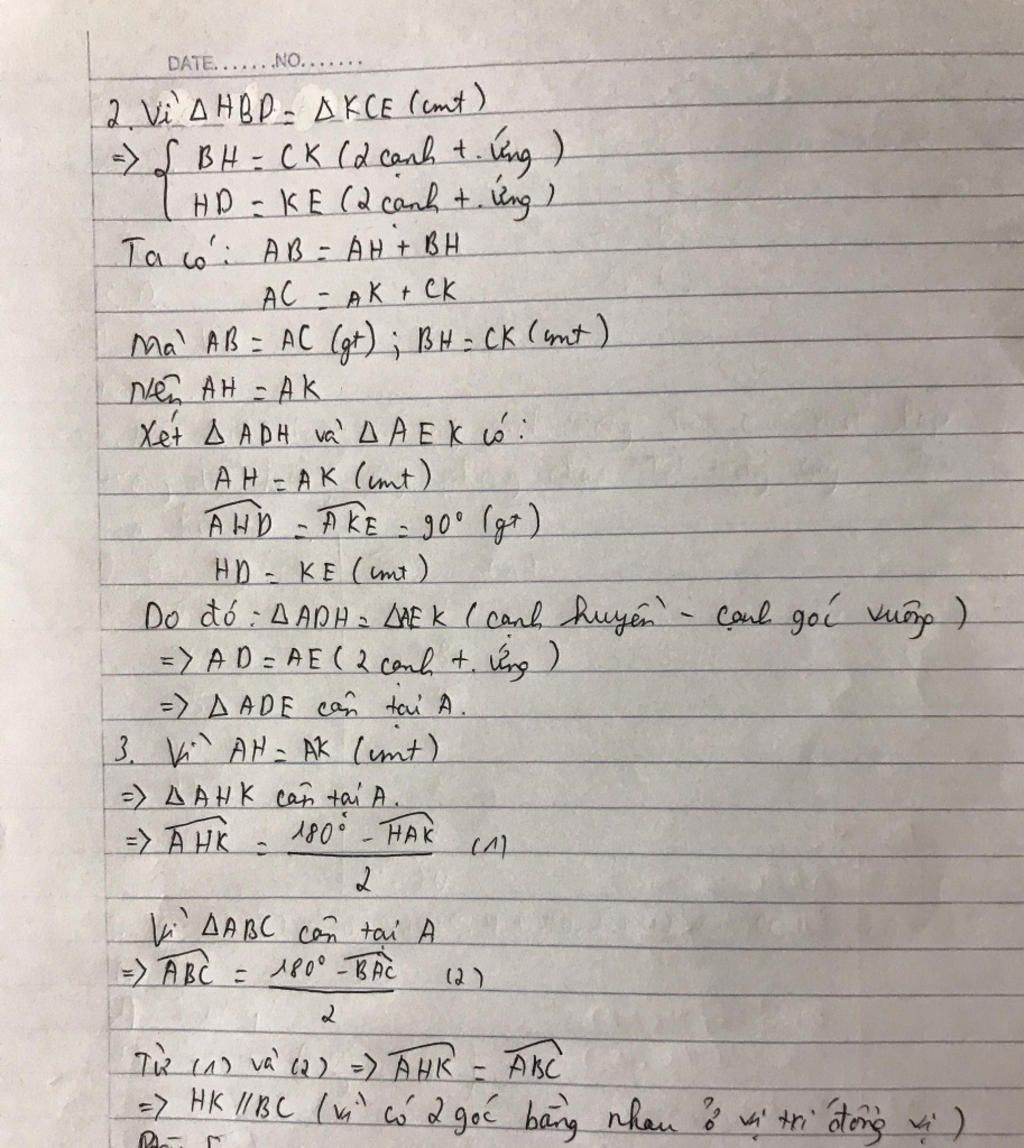 DATE.......NO.......
2. Vì Δ HBD = Δ KCE (cmt)
=> { BH = CK (2 cạnh t. ứng)
HD = KE (2 cạnh t. ứng)
Ta có: AB = AH + BH
AC = AK + CK
Mà AB = AC (gt) ; BH = CK (cmt)
Nên AH = AK
Xét Δ ADH và Δ AEK có:
AH = AK (cmt)
\widehat{AHD} = \widehat{AKE} = 90° (gt)
HD = KE (cmt)
Do đó: ΔADH = ΔAEK (cạnh huyền - cạnh góc vuông)
=> AD = AE (2 cạnh t. ứng)
=> Δ ADE cân tại A.
3. Vì AH = AK (cmt)
=> Δ AHK cân tại A.
=> \widehat{AHK} = \frac{180° - \widehat{HAK}}{2} (1)
Vì ΔABC cân tại A
=> \widehat{ABC} = \frac{180° - \widehat{BAC}}{2} (2)
Từ (1) và (2) => \widehat{AHK} = \widehat{ABC}
=> HK // BC (vì có 2 góc bằng nhau ở vị trí đồng vị)